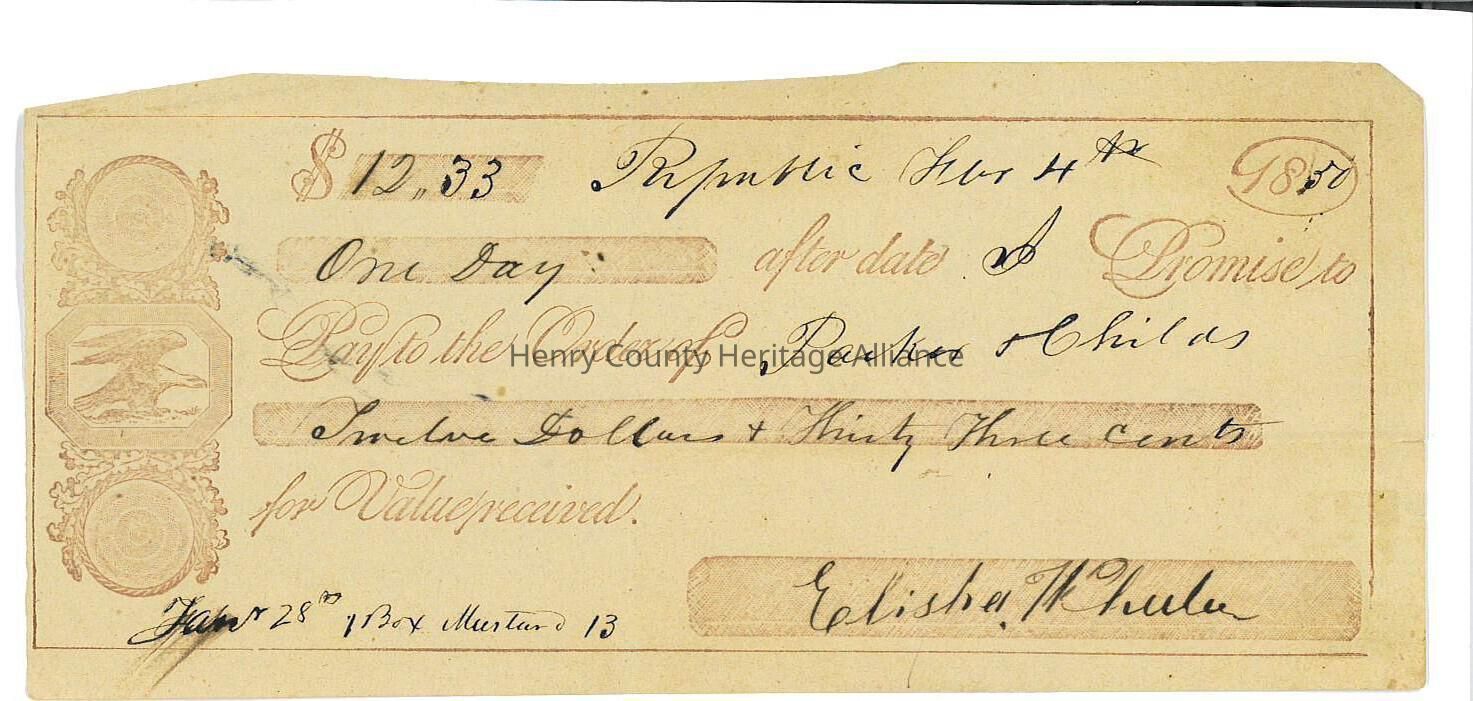 $ 12,, 33 Republic Febr 4th 1850
One Day after date I Promise to
Pay to the Order of Parker & Childs
Henry County Heritage Alliance
Twelve Dollars & Thirty Three cents
for Value received.
Elisha
28th 1 Box Mustard 13